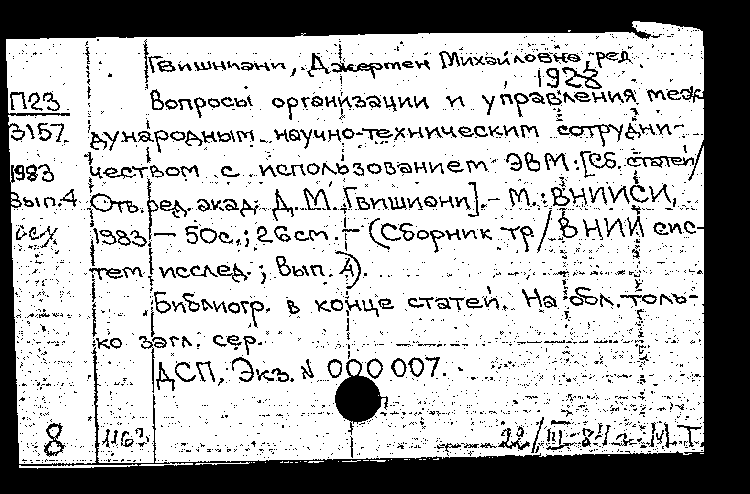 Гвишиани, Джермен Михайлович, ред.
1928
П23 Вопросы организации и управления меж-
3157 дународным научно-техническим сотрудни-
1983 чеством с использованием ЭВМ: [Сб. статей /
Вып.4 Отв. ред. акад. Д. М. Гвишиани]. - М.: ВНИИСИ,
1983 — 50с.; 26см. — (Сборник тр / ВНИИ сис-
тем. исслед.; Вып. 4).
Библиогр. в конце статей. На обл. толь-
ко загл. сер.
ДСП. Экз. N 000 007.
8 1163 22/III-84 г. М.Т.